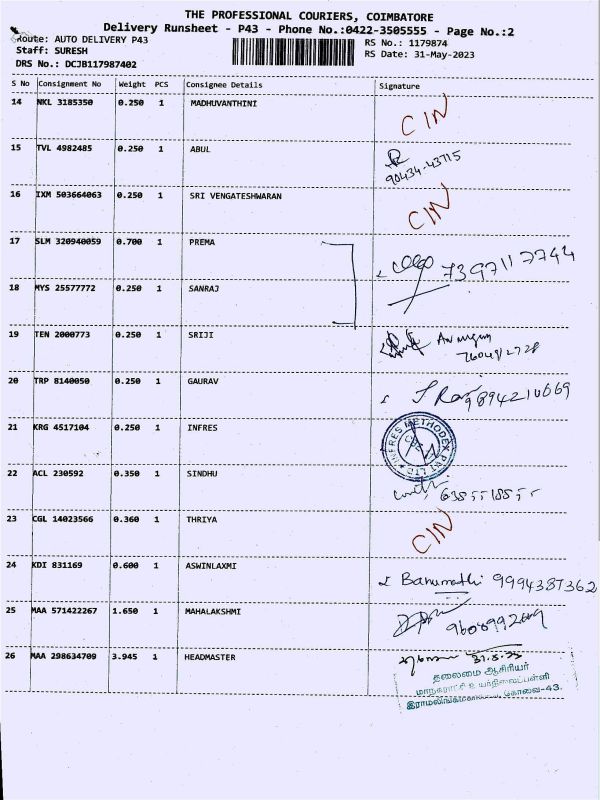 THE PROFESSIONAL COURIERS, COIMBATORE
Delivery Runsheet - P43 - Phone No.:0422-3505555 - Page No.:2
Route: AUTO DELIVERY P43 RS No.: 1179874
Staff: SURESH RS Date: 31-May-2023
DRS No.: DCJB117987402
S No Consignment No Weight PCS Consignee Details Signature
14 NKL 3185350 0.250 1 MADHUVANTHINI CIN
15 TVL 4982485 0.250 1 ABUL
90434-43715
16 IXM 503664063 0.250 1 SRI VENGATESHWARAN CIN
17 SLM 320940059 0.700 1 PREMA 7397117744
18 MYS 25577772 0.250 1 SANRAJ
19 TEN 2000773 0.250 1 SRIJI
20 TRP 8140050 0.250 1 GAURAV
21 KRG 4517104 0.250 1 INFRES INFRES METHODEX PVT LTD
22 ACL 230592 0.350 1 SINDHU
23 CGL 14023566 0.360 1 THRIYA CIN
24 KDI 831169 0.600 1 ASWINLAXMI Banumathi 9994387362
25 MAA 571422267 1.650 1 MAHALAKSHMI
26 MAA 298634709 3.945 1 HEADMASTER
தலைமை ஆசிரியர்
கோவை-43.